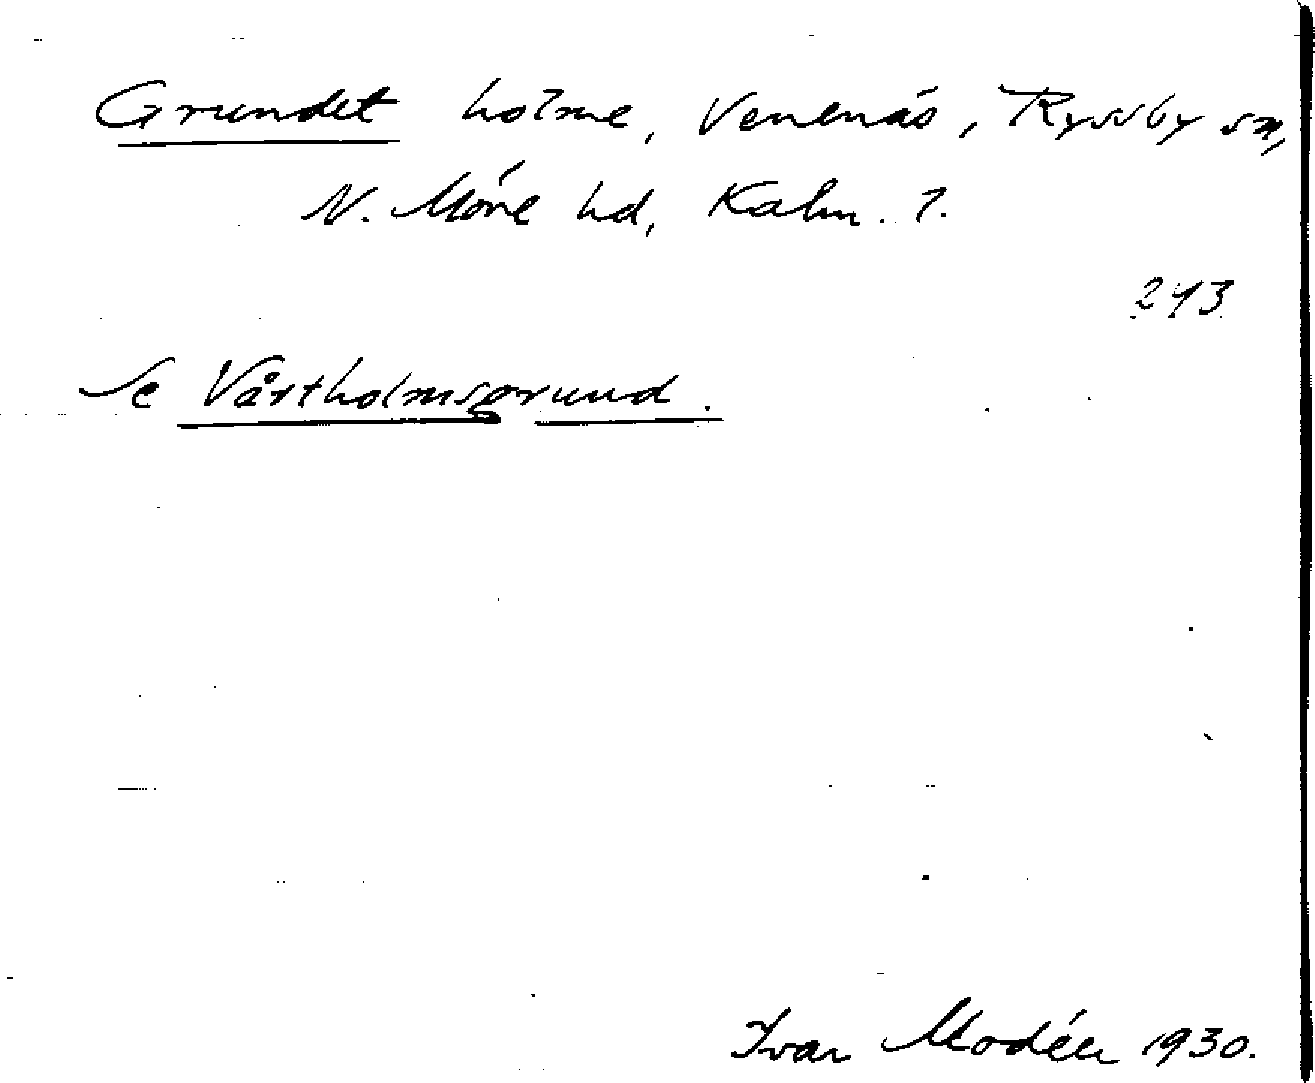 Grundet holme, Venenäs, Ryssby sn,
N. Möre hd, Kalm. l.
243
Se Vårtholmsgrund.
Ivar Modéer 1930.